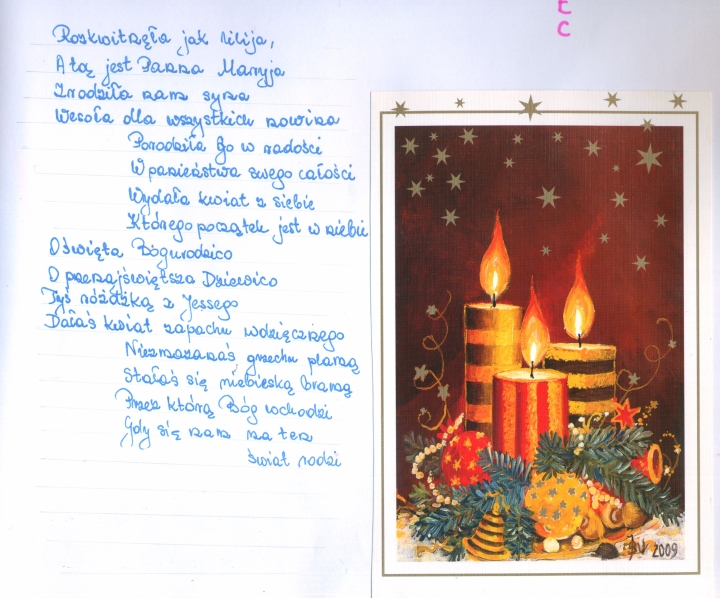 E
C
Rozkwitnęła jak lilija,
A tą jest Panna Maryja
Zrodziła nam syna
Wesoła dla wszystkich nowina
Porodziła Go w radości
W panieństwa swego całości
Wydała kwiat z siebie
Którego początek jest w niebie
O święta Bogurodzico
O przenajświętsza Dziewico
Tyś różdżką z Jessego
Dałaś kwiat zapachu wdzięcznego
Niezmazanaś grzechu plamą
Stałaś się niebieską bramą
Przez którą Bóg wchodzi
Gdy się nam na ten
świat rodzi
2009